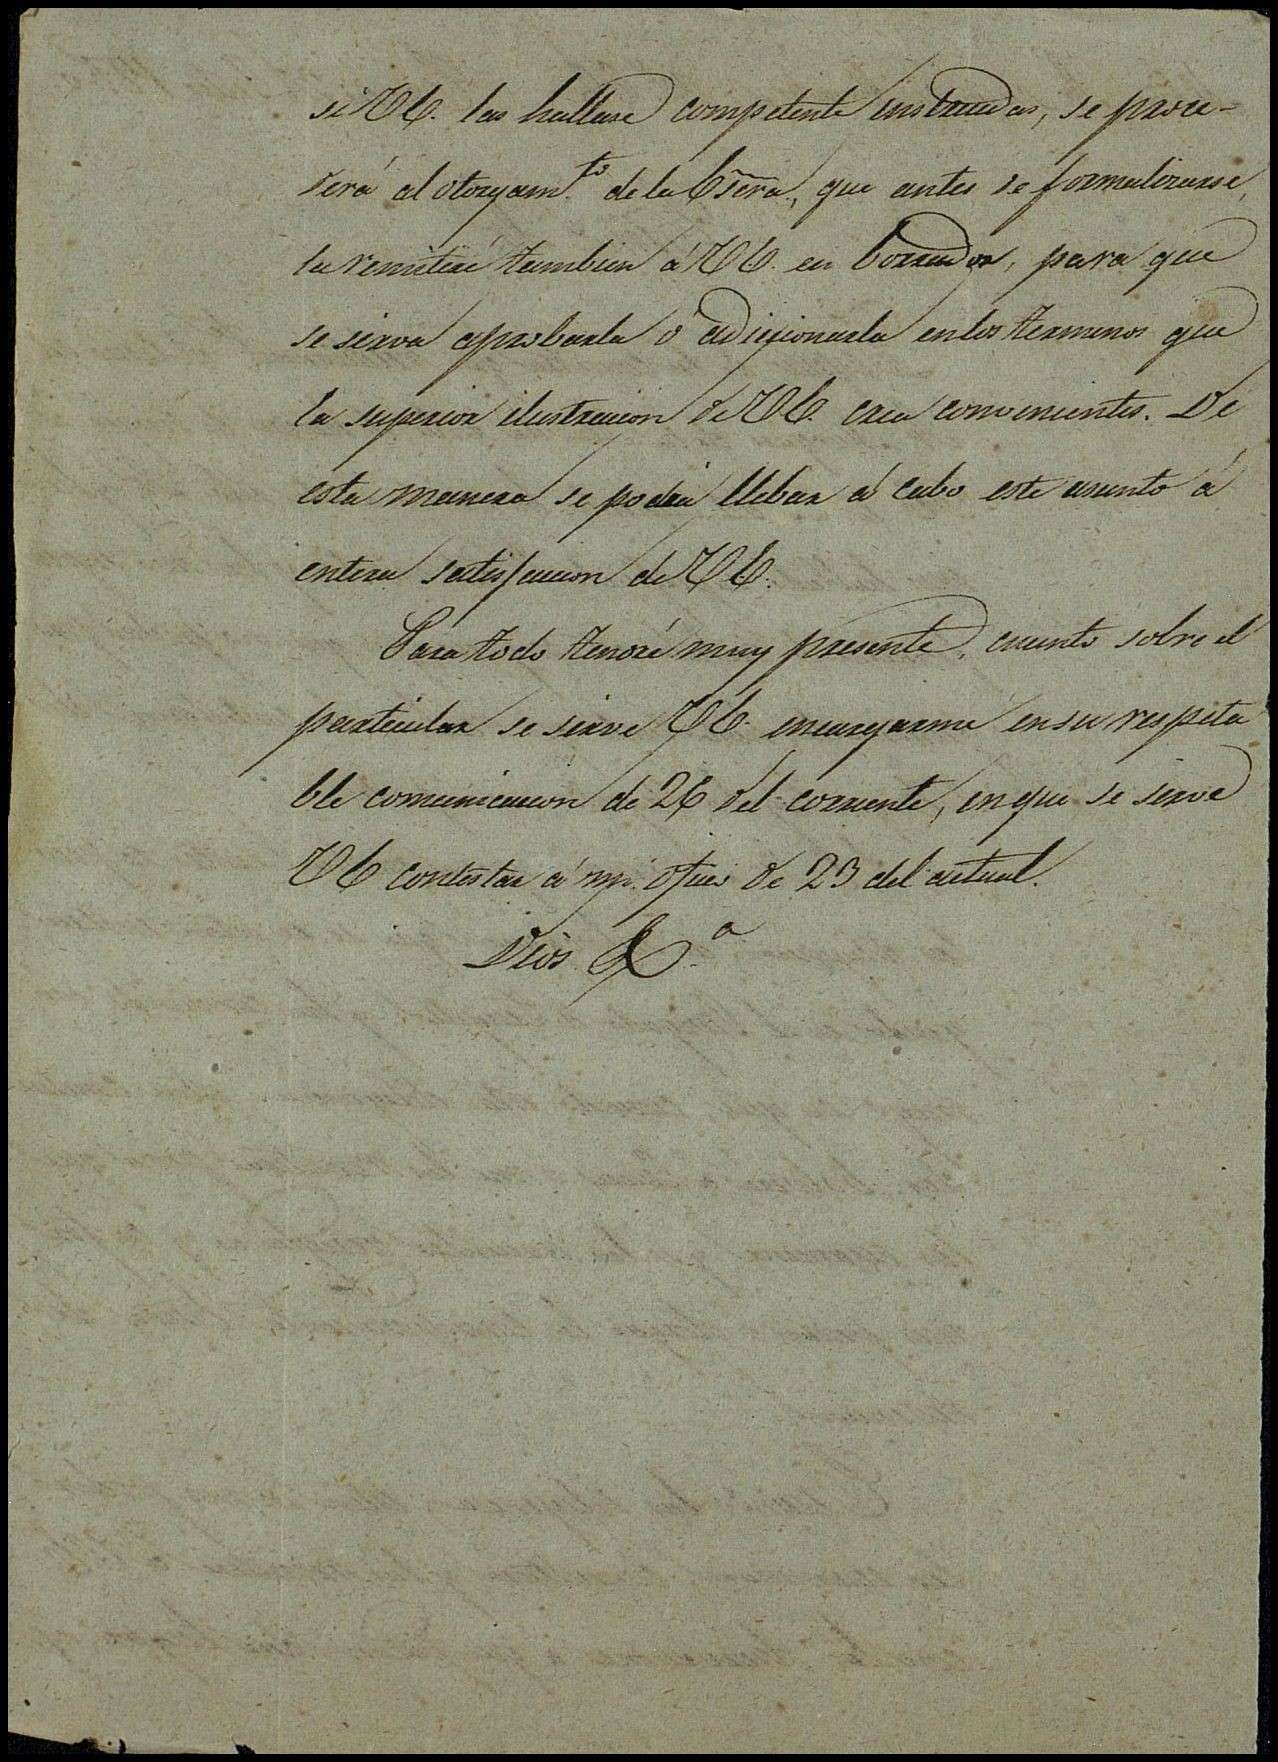 si V.E. las hallase competente instruidas, se proce-
derá al otorgam.to de la Esc̃ra., que antes de formalizarse,
la remitiré tambien á V.E. en borrador, para que
se sirva aprobarla ó adiccionarla en los terminos que
la superior ilustracion de V.E. crea convenientes. De
esta manera se podrá llebar á cabo este asunto á
entera satisfaccion de V.E.
Para todo tendré muy presente, cuanto sobre el
particular se sirve V.E. encargarme en su respeta
ble comunicacion de 26 del corriente, en que se sirve
V.E. contestar á mi oficio de 23 del actual.
Dios &.a